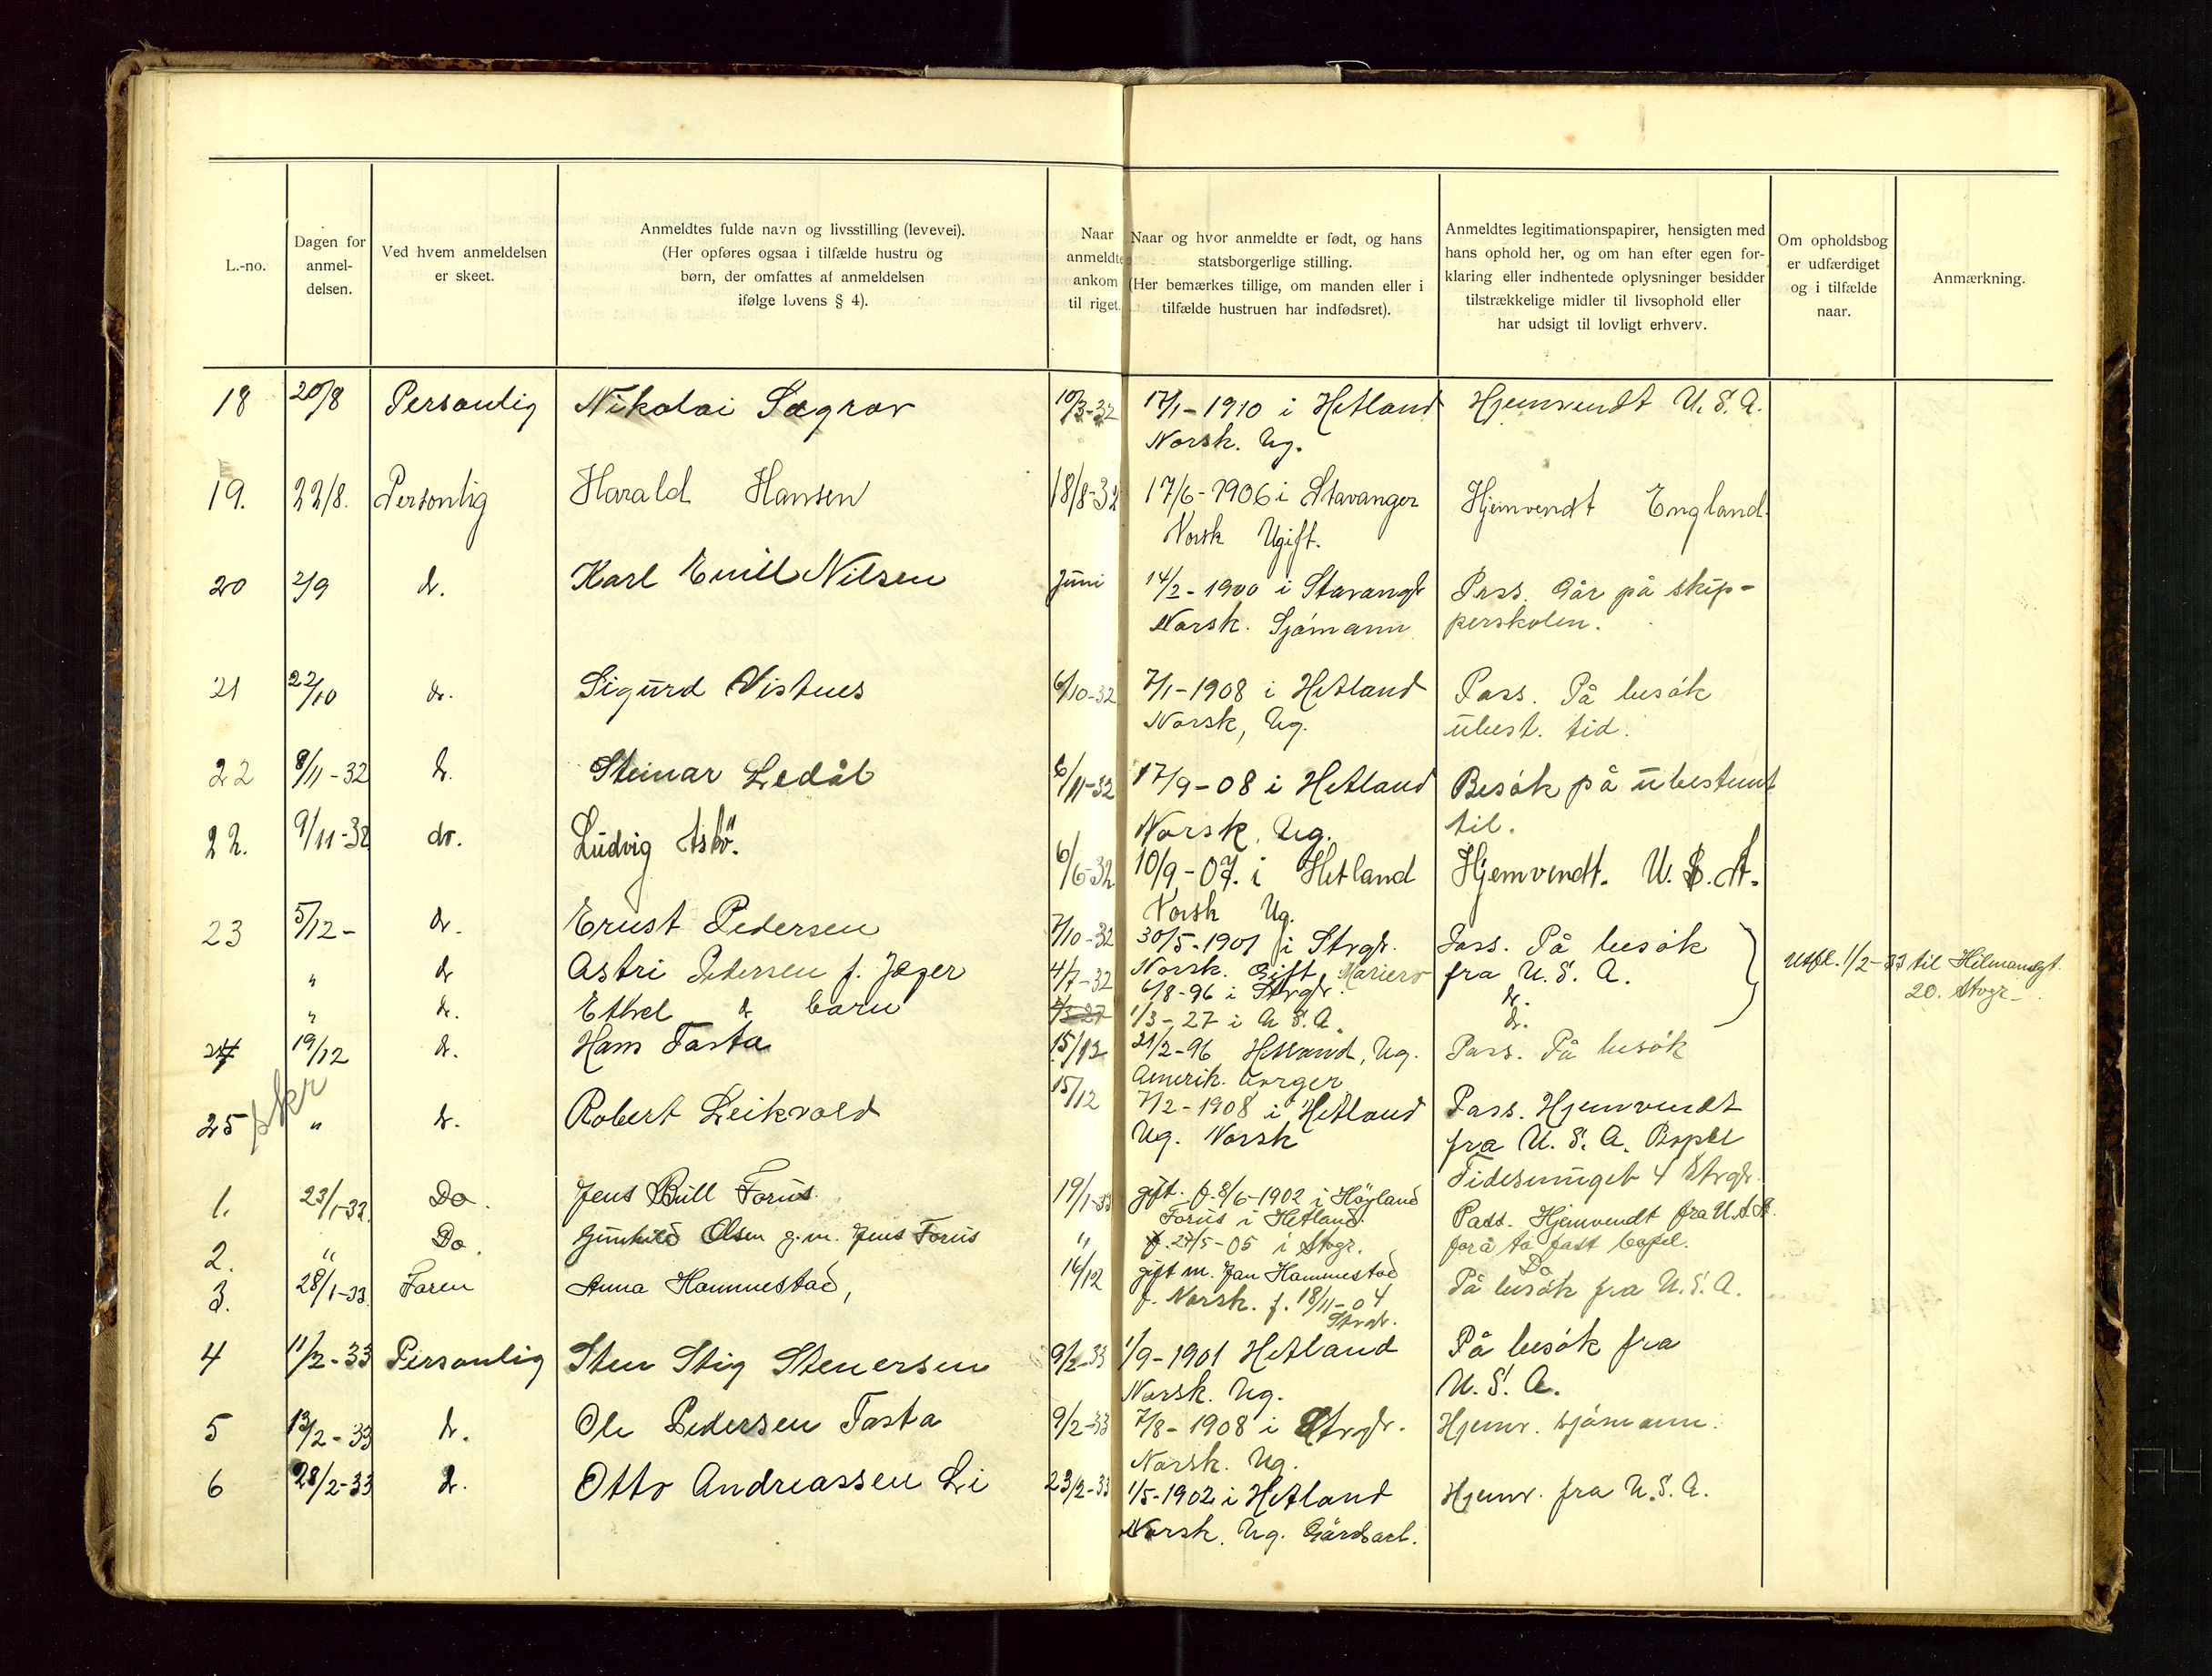 L.-no.
Dagen for
anmel-
delsen.
Ved hvem anmeldelsen
er skeet.
Anmeldtes fulde navn og livsstilling (levevei).
(Her opføres ogsaa i tilfælde hustru og
børn, der omfattes af anmeldelsen
ifølge lovens § 4).
Naar
anmeldte
ankom
til riget.
Naar og hvor anmeldte er født, og hans
statsborgerlige stilling.
(Her bemærkes tillige, om manden eller i
tilfælde hustruen har indfødsret).
Anmeldtes legitimationspapirer, hensigten med
hans ophold her, og om han efter egen for-
klaring eller indhentede oplysninger besidder
tilstrækkelige midler til livsophold eller
har udsigt til lovligt erhverv.
Om opholdsbog
er udfærdiget
og i tilfælde
naar.
Anmærkning.
18 20/8 Personlig Nikolai Sægrov 10/3-32 17/1-1910 i Hetland Hjemvendt U.S.A.
Norsk. Ug.
19. 22/8. Personlig Harald Hansen 18/8-32 17/6-1906 i Stavanger Hjemvendt England.
Norsk Ugift.
20 2/9 do. Karl Emill Nilsen Juni 14/2-1900 i Stavangr Pass. Går på skip-
Norsk. Sjómann perskolen.
21 22/10 do. Sigurd Vistnes 6/10-32 7/1-1908 i Hetland Pass. På besók
Norsk, Ug. ubest. tid.
22 8/11-32 do. Steinar Ledål 6/11-32 17/9-08 i Hetland Besók på ubestemt
Norsk. Ug. til.
22. 9/11-32 do. Ludvig Asbö. 6/6-32 10/9-07. i Hetland Hjemvendt. U.S.A.
Norsk Ug.
23 5/12- do. Ernst Pedersen 7/10-32 30/5-1901 i Stvgr. Pass. På besók
Norsk. Gift,
" do Astri Pedersen f. Jæger 4/7-32 6/8-96 i Stvgr. fra U.S.A. Utfl. 1/2-33 til
do. 20. Stvgr.
" do. Ethel do barn 1/3-27 i U.S.A. do.
24 19/12 do. Hans Tasta 15/12 21/2-96 Hetland, Ug. Pass. På besók
Amerik. borger
25 " do. Robert Leikvold 15/12 7/2-1908 i Hetland Pass. Hjemvendt
Ug. Norsk fra U.S.A. Bopel
Tidesmuget 4 Stvgr.
1. 23/1-32. Do. Jens Bull Forus. 19/1-33 gift. f. 8/6-1902 i Höyland
Forus i Hetland. Pass. Hjemvendt fra U.S.A.
2. " Do. Gunhild Olsen g.m. Jens Forus " f. 27/5-05 i Stvgr. forå ta fast bopel.
Do
3. 28/1-33. Faren Anna Hammestad, 16/12 gift m. Jan Hammestad På besók fra U.S.A.
f. Norsk. f. 18/11-04
Stvgr.
4 11/2-33 Personlig Sten Stig Stenersen 9/2-33 1/9-1901 Hetland På besók fra
Norsk. Ug. U.S.A.
5 13/2-33 do. Ole Pedersen Tasta 9/2-33 7/8-1908 i Stvgr. Hjemv. sjómann.
Norsk. Ug.
6 28/2-33 do. Otto Andreassen Li 23/2-33 1/5-1902 i Hetland Hjemv. fra U.S.A.
Norsk. Ug. Gårdsarb.